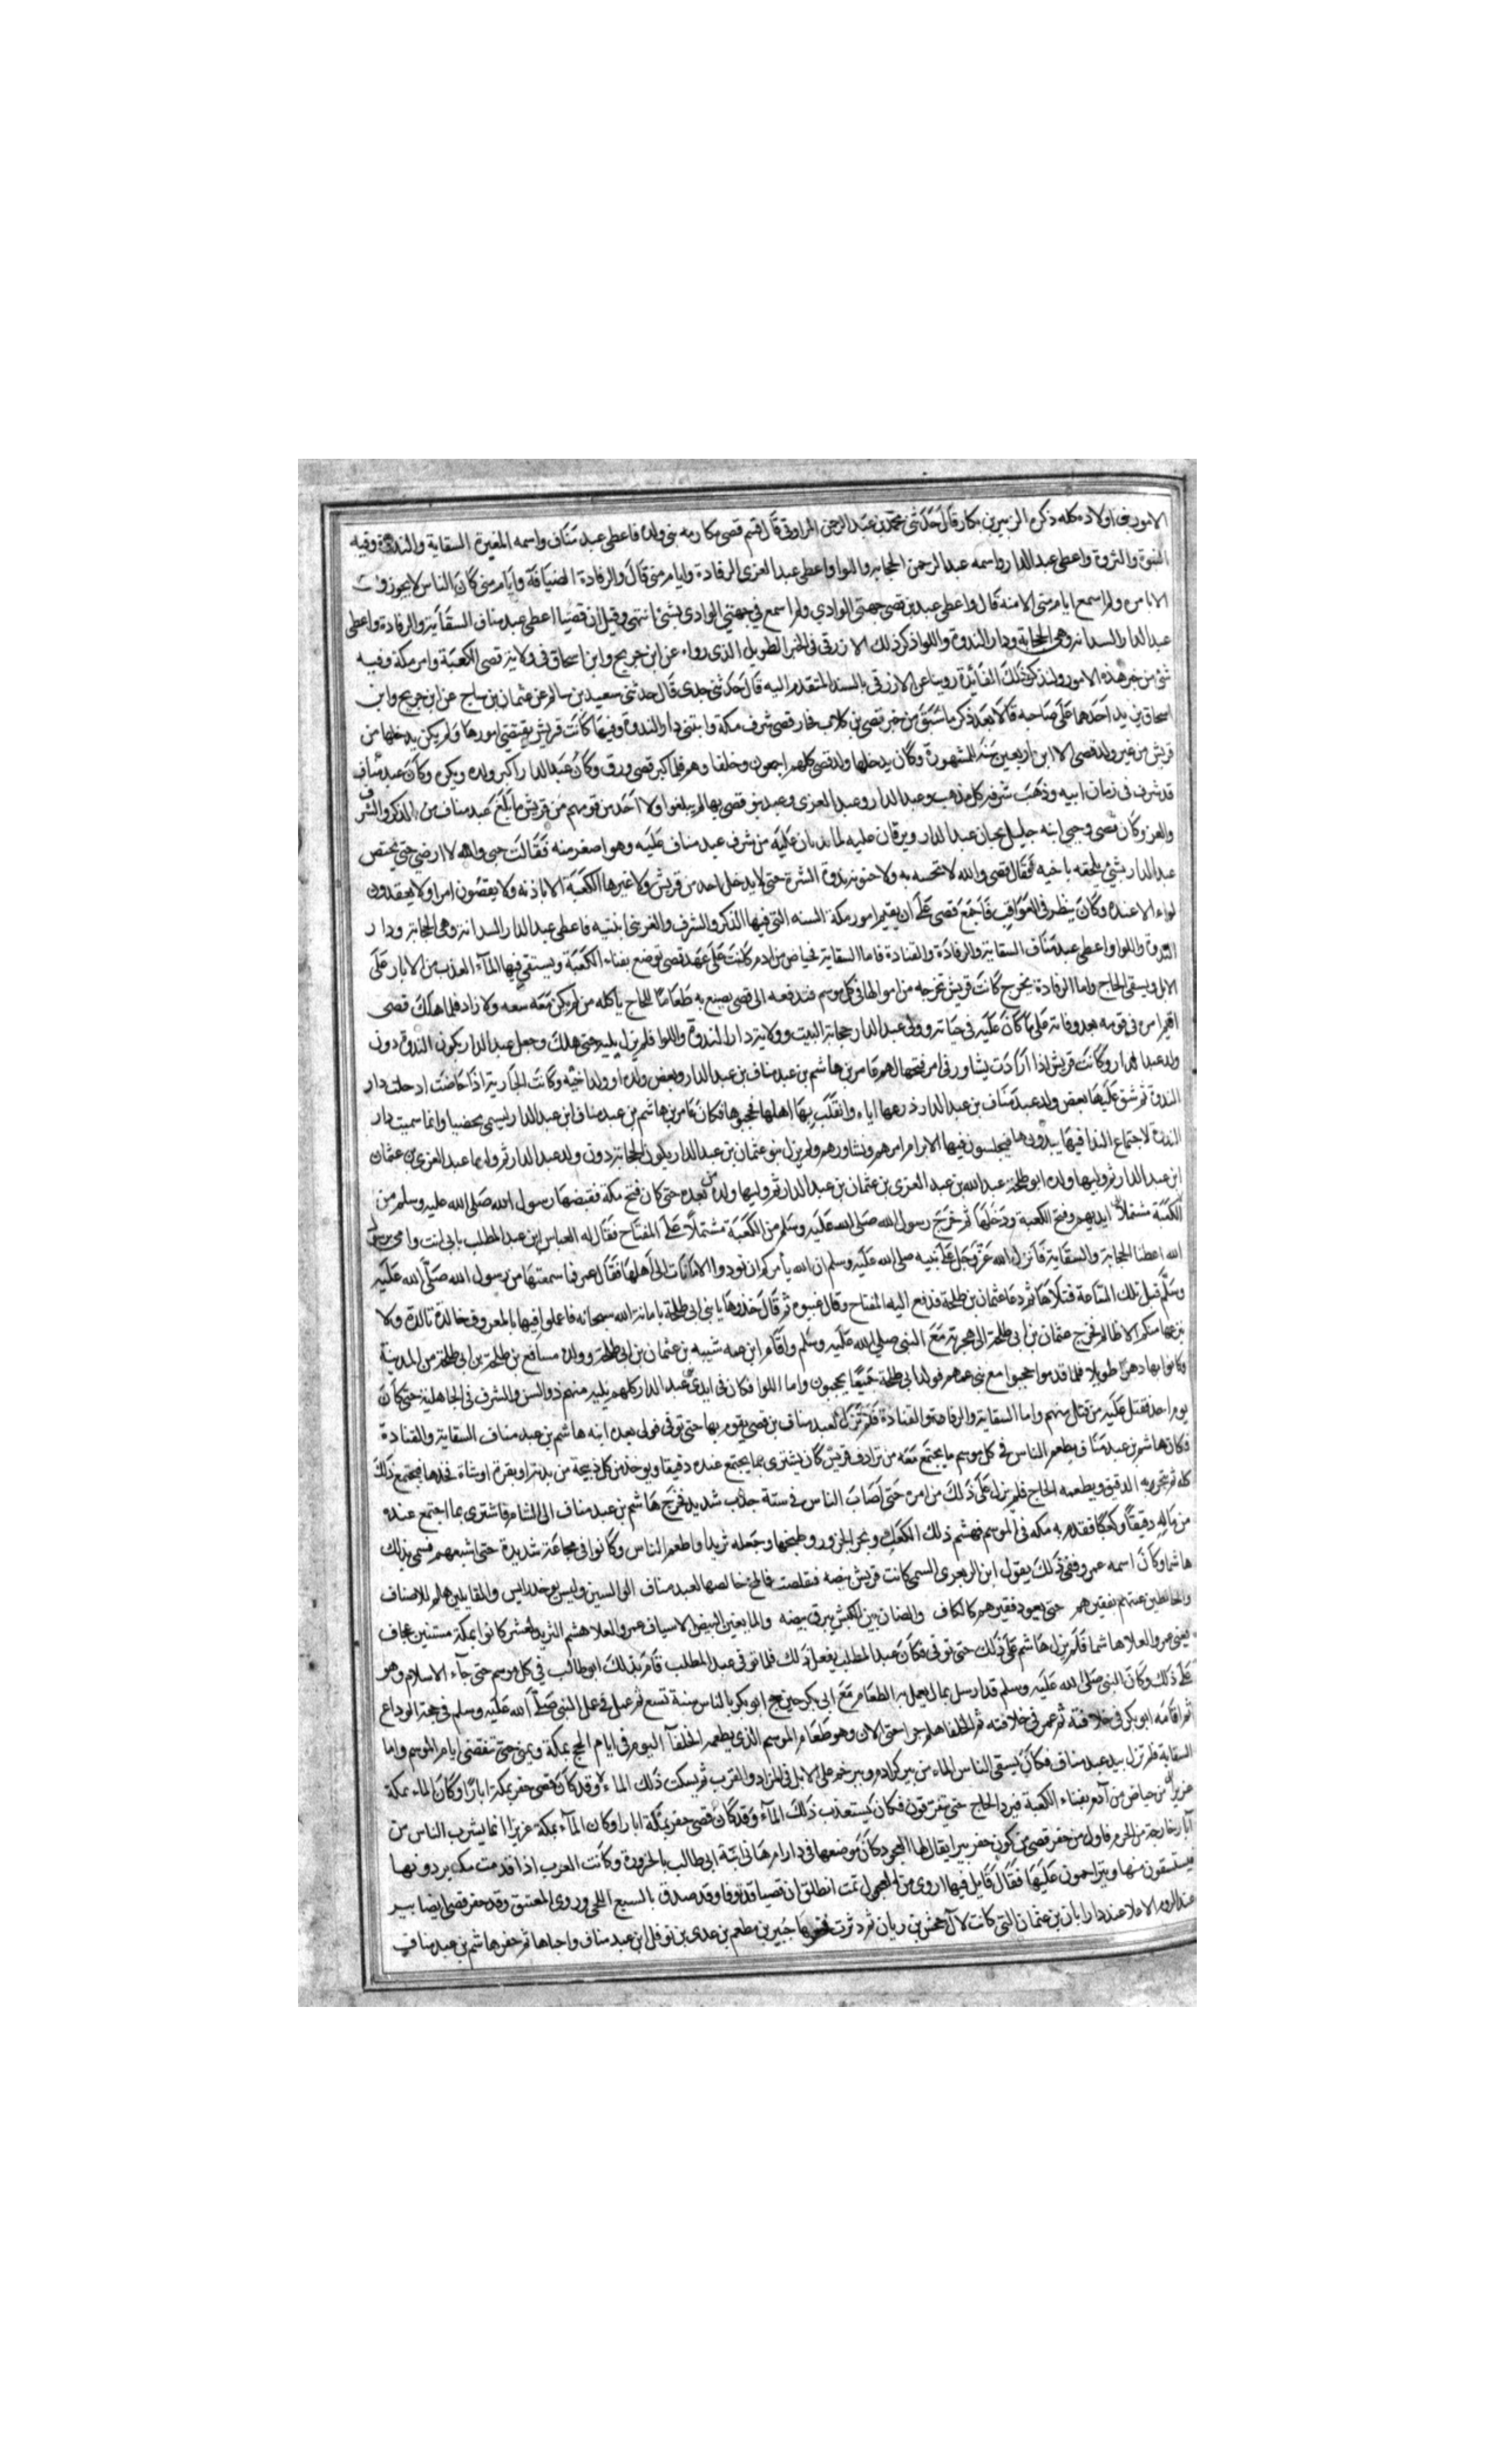 الامور في اولاده كله ذكره الزبير بن بكار قال حدثني محمد بن عبد الرحمن المراوني قال قسم قصي مكارمه بني ولده فاعطى عبد مناف واسمه المغيرة السقاية والندوة وفيه
النبوة والثروة واعطى عبد الدار واسمه عبد الرحمن الحجابة واللوا واعطى عبد العزى الرفادة وايام منى قال والرفادة الضيافة وايام منى كان الناس لا يجوزون
الا بامره ولم اسمع ايام منى الا منه قال واعطى عبد بن قصي جهتي الوادي ولم اسمع في جهتي الوادي بشئ انتهى وقيل ان قصيا اعطى عبد مناف السقاية والرفادة واعطى
عبد الدار السدانة وهي الحجابة ودار الندوة واللوا ذكر ذلك الازرقي في الخبر الطويل الذي رواه عن ابن جريج وابن اسحاق في ولاية قصي الكعبة وامر مكة وفيه
شئ من خبر هذه الامور ولنذكر ذلك الفائدة روينا عن الازرقي بالسند المتقدم اليه قال حدثني جدي قال حدثني سعيد بن سالم عن عثمان بن ساج عن ابن جريج وابن
اسحاق يزيد احدهما على صاحبه قالا بعد ذكر ما سبق من خبر قصي بن كلاب فحاز قصي شرف مكة وابتنى دار الندوة وفيها كانت قريش تقتضي امورها ولم يكن يدخلها من
قريش من غير ولد قصي الا ابن اربعين سنة للمشهورة وكان يدخلها ولد قصي كلهم اجمعون وخلفا وهم فلما كبر قصي ورق وكان عبد الدار اكبر ولده وبكره وكان عبد مناف
قد شرف في زمان ابيه وذهب شرفه كل مذهب وعبد الدار وعبد العزى وعبد بنو قصي بها لم يبلغوا ولا احد من قومهم من قريش ما بلغ عبد مناف من الذكر والشرف
والعز وكان قصي وحبي ابنة حليل يحبان عبد الدار ويرقان عليه لما يريان عليه من شرف عبد مناف عليه وهو اصغر منه فقالت حبي والله لا ارضى حتى يختص
عبد الدار بشئ يلحقه باخيه فقال قصي والله لا تحسه به ولا حنونه بذروة الشرة حتى لا يدخل احد من قريش ولا غيرها الكعبة الا باذنه ولا يقضون امرا ولا يعقدون
لواء الا عنده وكان ينظر في العواقب فاجمع قصي على ان يقسم امور مكة الستة التي فيها الذكر والشرف والعز بني ابنيه فاعطى عبد الدار السدانة وهي الحجابة ودار
الندوة واللوا واعطى عبد مناف السقاية والرفادة والقيادة فاما السقاية فحياض من ادم كانت على عهد قصي توضع بفناء الكعبة ويستقي فيها المآء العذب من الابار على
الابل ويسقى الحاج واما الرفادة فخرج كانت قريش تخرجه من اموالها في كل موسم فتدفعه الى قصي يصنع به طعاما للحاج ياكله من لم يكن معه سعه ولا زاد فلما هلك قصي
اقيم امره في قومه بعد وفاته على ما كان عليه في حياته وولي عبد الدار حجابة البيت وولاية دار الندوة واللوا فلم يزل يليه حتى هلك وجعل عبد الدار يكون الندوة دون
ولد عبد الدار وكانت قريش اذا ارادت يشاور في امر فتحها لهم عامر بن هاشم بن عبد مناف بن عبد الدار وبعض ولده او ولد اخيه وكانت الجارية اذا حاضت ادخلت دار
الندوة ثم شق عليها بعض ولد عبد مناف بن عبد الدار ذرعها اياه وانقلب بها اهلها فحجبوها فكان عامر بن هاشم بن عبد مناف ابن عبد الدار يسمى محضيا وانما سميت دار
الندوة لاجتماع الندا فيها يبدونها فيجلسون فيها لابرام امرهم ونشاورهم ولم يزل بنو عثمان بن عبد الدار يكون الحجابة دون ولد عبد الدار ثم وليها عبد العزى بن عثمان
ابن عبد الدار ثم وليها ولده ابو طلحة عبد الله بن عبد العزى بن عثمان بن عبد الدار ثم وليها ولده من بعده حتى كان فتح مكة فقبضها رسول الله صلى الله عليه وسلم من
ايديهم وفتح الكعبة ودخلها ثم خرج رسول الله صلى الله عليه وسلم من الكعبة مشتملا على المفتاح فقال له العباس ابن عبد المطلب بابي انت وامي يرسول
الله اعطنا الحجابة والسقاية فانزل الله عز وجل على نبيه صلى الله عليه وسلم ان الله يأمركم ان تودوا الامانات الى اهلها فقال عمر فما سمعتها من رسول الله صلى الله عليه
وسلم قبل تلك الساعة فتلاها ثم دعا عثمان بن طلحة فدفع اليه المفتاح وقال غيبوه ثم قال خذوها يا بني ابي طلحة بامانة الله سبحانه فاعملوا فيها بالمعروف خالدة تالدة ولا
ينزعها منكم الا ظالم فخرج عثمان بن ابي طلحة الى هجرته مع النبي صلى الله عليه وسلم واقام ابن عمه شيبه بن عثمان بن ابي طلحة وولده مسافع بن طلحة بن ابي طلحة من المدينة
وكانوا بها دهرا طويلا فلما قدموا حجبوا مع بني عمهم فولد ابي طلحة جميعا يحجبون واما اللوا فكان في ايدي بني عبد الدار كلهم يليه منهم ذو السن والشرف في الجاهلية حتى كان
يوم احد فقتل عليه من قتل منهم واما السقاية والرفادة والقيادة فلم تزل لعبد مناف بن قصي يقوم بها حتى توفي فولي بعده ابنه هاشم بن عبد مناف السقاية والقيادة
فكان هاشم بن عبد مناف يطعم الناس في كل موسم ما يجتمع معه من ترادف قريش كان يشتري بما يجتمع عنده دقيقا وياخذ من كل ذبيحة من بدنة او بقرة او شاة فخذها فيجتمع ذلك
كله ثم ينحر به الدقيق ويطعمه الحاج فلم يزل على ذلك من امره حتى اصاب الناس في سنة جدب شديد فخرج هاشم بن عبد مناف الى الشام فاشترى بما اجتمع عنده
من ماله دقيقا وكعكا فقدم به مكه في الموسم فهشم ذلك الكعك ونحر الجزور وطبخها وجعله ثريدا واطعم الناس وكانوا في مجاعة شديدة حتى اشبعهم فسمي بذلك
هاشما وكان اسمه عمر وففي ذلك يقول ابن الزبعرى السمى كانت قريش بيضه فتفلقت فالمخ خالصها لعبد مناف الو السين وليس يوخذ رايس والقايلين هلم للاضياف
والخالطين غنيهم بفقيرهم حتى يعود فقيرهم كالكاف والضاربين الكبش يبرق بيضه والمانعين البيض بالاسياف عمرو العلا هشم الثريد لمعشر كانوا بمكة مسنتين عجاف
يعني عمرو العلا هاشما فلم يزل هاشم على ذلك حتى توفي فكان عبد المطلب يفعل ذلك فلما توفي عبد المطلب قام بذلك ابو طالب في كل موسم حتى جآء الاسلام وهو
على ذلك وكان النبي صلى الله عليه وسلم قد ارسل بمال يعمل به الطعام مع ابي بكر حين حج ابو بكر بالناس سنة تسع ثم عمل في عمل النبي صلى الله عليه وسلم في حجة الوداع
ثم اقامه ابو بكر في خلافته ثم عمر في خلافته ثم الخلفا هلم جرا حتى الان وهو طعام الموسم الذي يطعمه الخلفآ اليوم في ايام الحج بمكة وبمنى حتى تنقضي ايام الموسم واما
السقاية فلم تزل بيد عبد مناف فكان يسقى الناس الماء من بير كرادم وبير خم على الابل في المزاد والقرب ثم يسكب ذلك الماء
من حياض من آدم بفناء الكعبة فيرد الحاج حتى يتفرقون فكان يستعذب ذلك المآء وقد كان قصي حفر بمكة ابارا وكان المآء بمكة عزيزا انما يشرب الناس من
آبار خارجة من الحرم فاول من حفر قصي بن كلاب حفر بيرا يقال لها العجول كان موضعها في دار ام هانئ ابنة ابي طالب بالحزورة وكانت العرب اذا قدمت مكه يردونها
فيستقون منها ويتزاحمون عليها فقال قايل فيها اروي من العجول ثمت انطلق ان قصيا قد توفا وقد صدق بالسبع اللحى وروى المعتنق وقد حفر قصي ايضا بير
عند الردم الاعلا عند دار ابان بن عثمان التي كانت لآل جحش بن ريان ثم دثرت فنثرها جبير بن مطعم بن عدي بن نوفل ابن عبد مناف واحياها ثم حفر هاشم بن عبد مناف